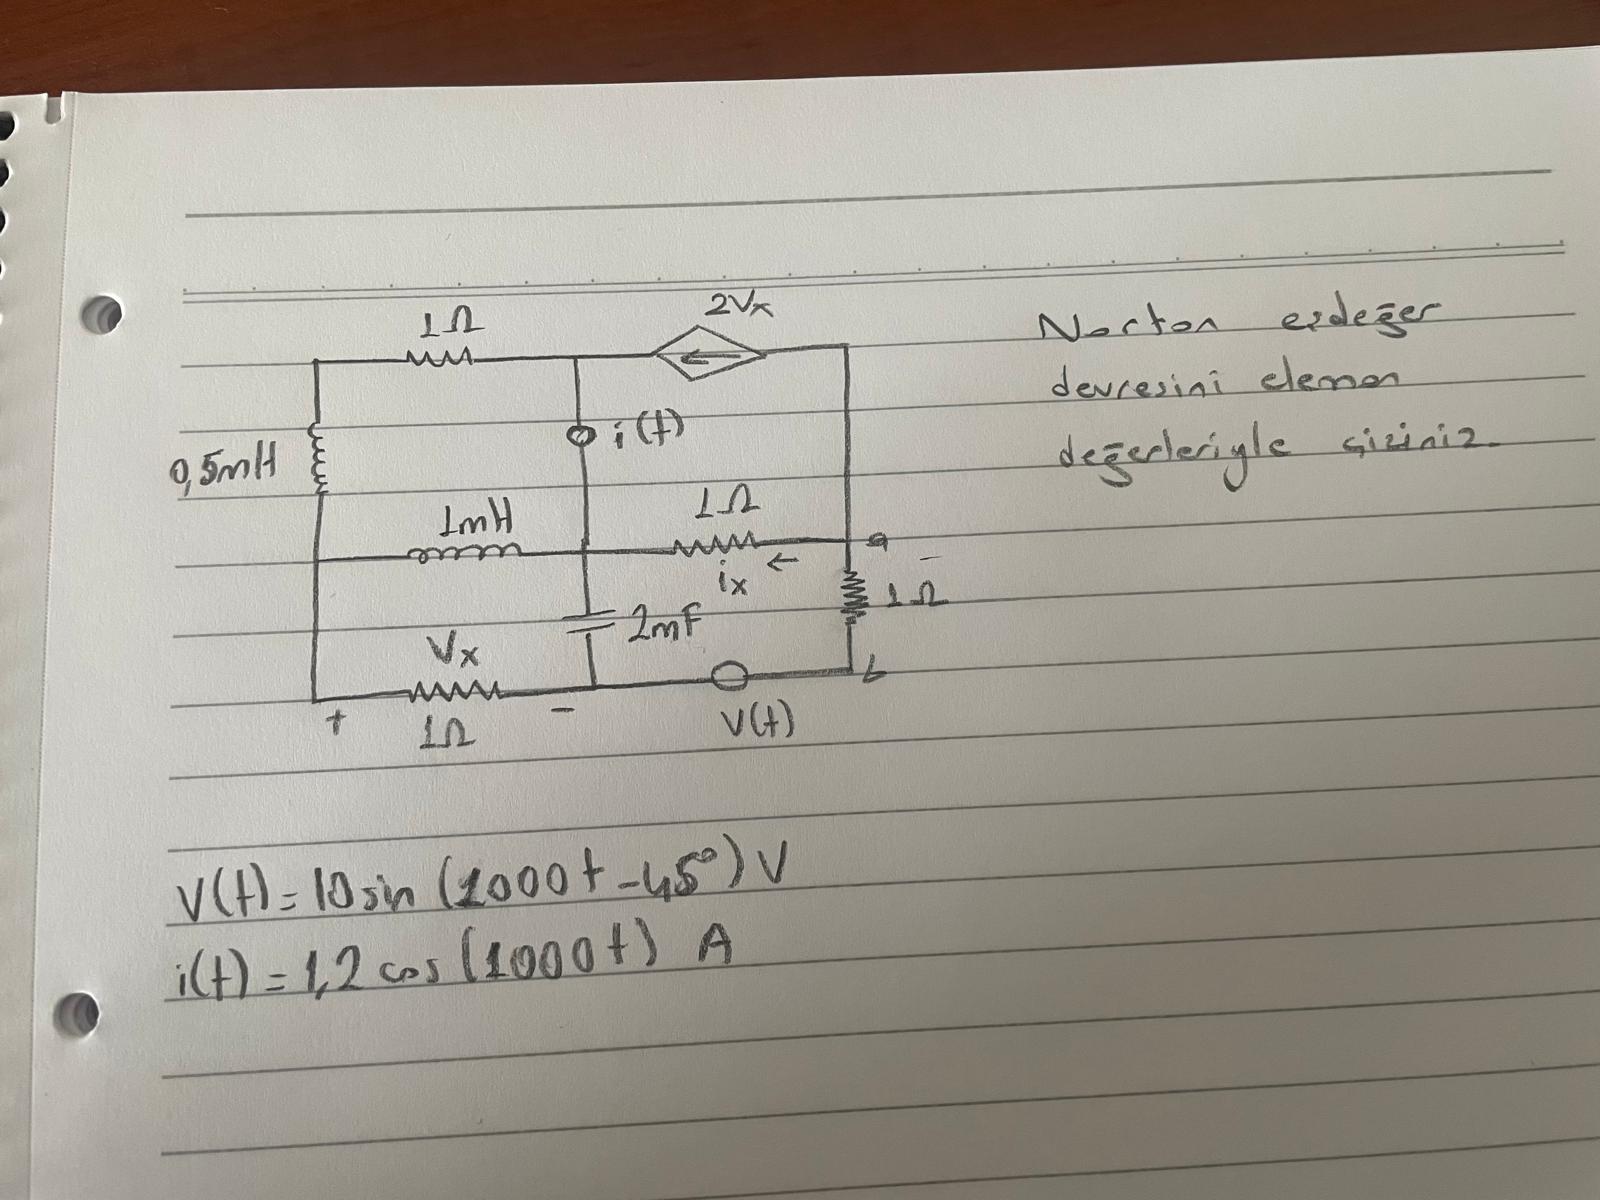 2Vx
1Ω
Norton eşdeğer
devresini eleman
değerleriyle çiziniz.
i(t)
0,5mH
1mH
1Ω
a
ix
-
1Ω
2mF
Vx
b
+
-
1Ω
V(t)
V(t)=10sin(1000t-45°)V
i(t)=1,2cos(1000t) A